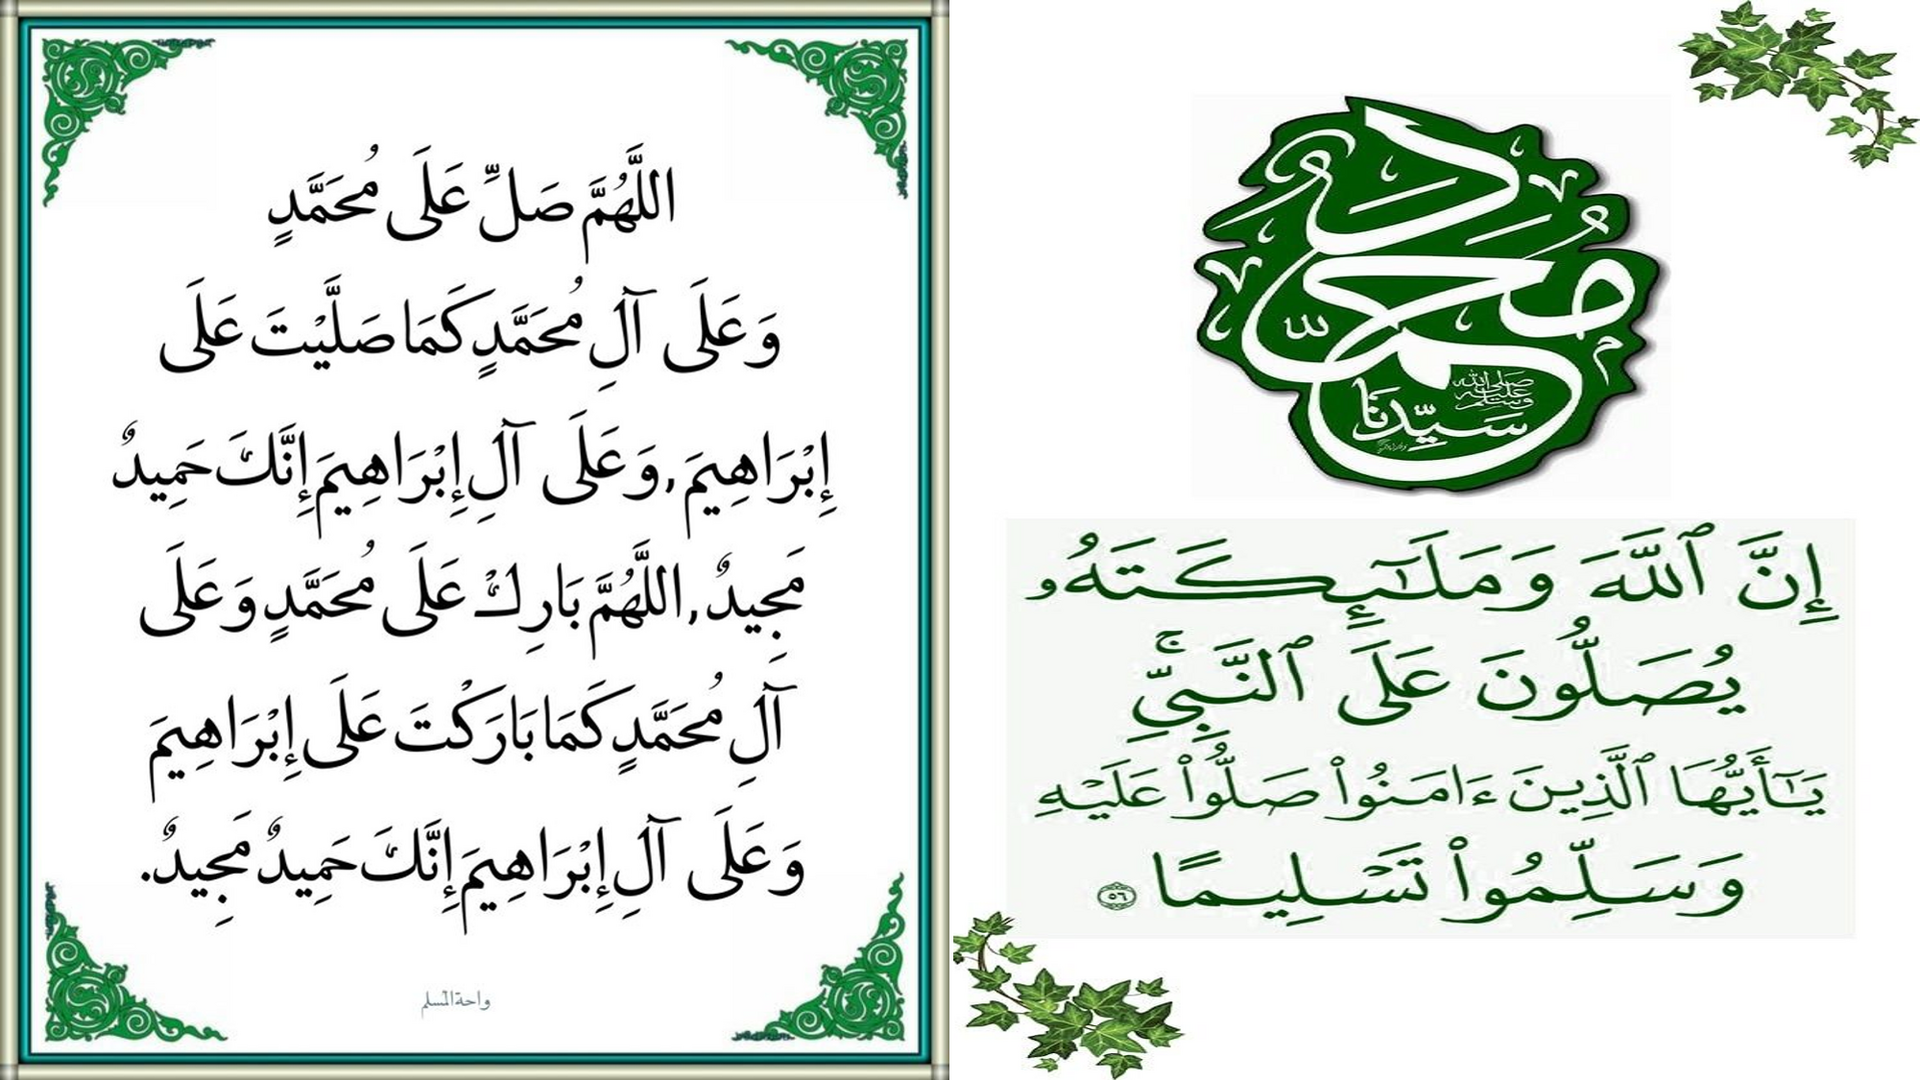 اللَّهُمَّ صَلِّ عَلَى مُحَمَّدٍ
وَعَلَى آلِ مُحَمَّدٍ كَمَا صَلَّيْتَ عَلَى
إِبْرَاهِيمَ , وَعَلَى آلِ إِبْرَاهِيمَ إِنَّكَ حَمِيدٌ
مَجِيدٌ , اللَّهُمَّ بَارِكْ عَلَى مُحَمَّدٍ وَعَلَى
آلِ مُحَمَّدٍ كَمَا بَارَكْتَ عَلَى إِبْرَاهِيمَ
وَعَلَى آلِ إِبْرَاهِيمَ إِنَّكَ حَمِيدٌ مَجِيدٌ .
واحة المسلم
محمد
صلى الله عليه وسلم
سَيِّدنَا
إِنَّ ٱللَّهَ وَمَلَـٰٓئِكَتَهُۥ
يُصَلُّونَ عَلَى ٱلنَّبِىِّ ۚ
يَـٰٓأَيُّهَا ٱلَّذِينَ ءَامَنُوا۟ صَلُّوا۟ عَلَيْهِ
وَسَلِّمُوا۟ تَسْلِيمًا ٥٦